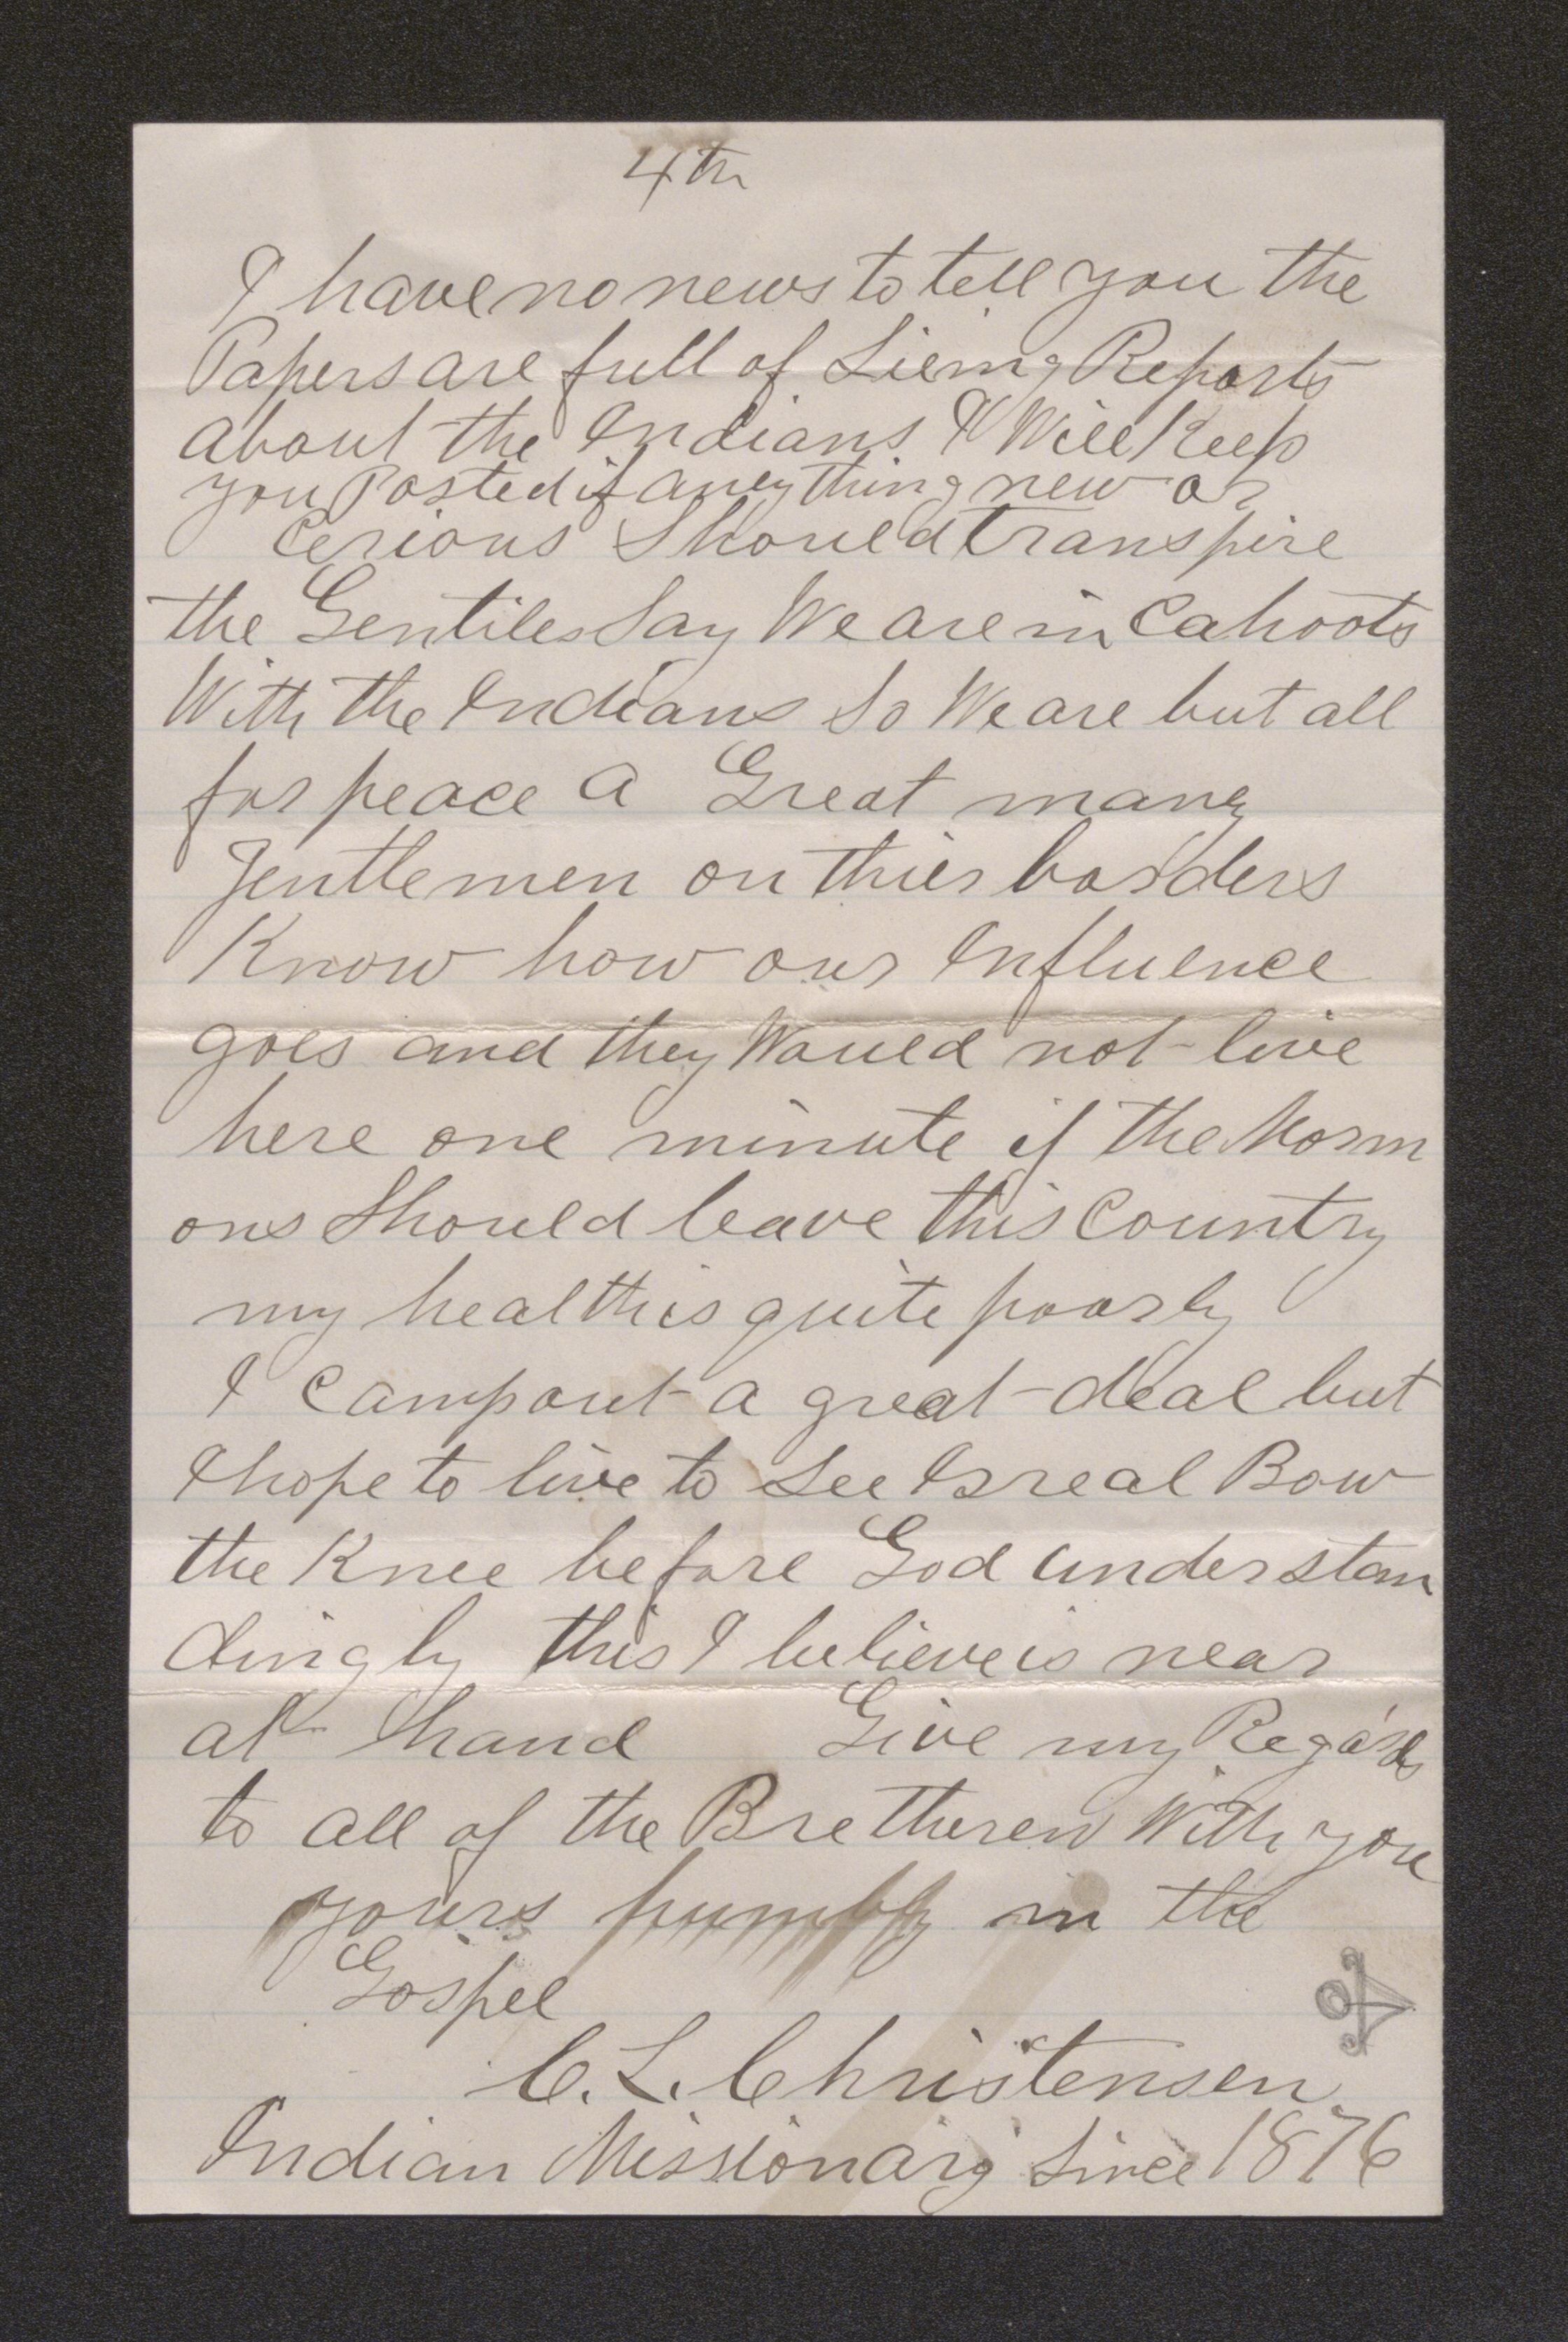 4th
I have no news to tell you the
Papers are full of Lieing Reports
about the Indians I Will Keep
you Posted if aney thing new or
Cerious Should transpire
the Gentiles Say We are in Cahoots
With the Indians So We are but all
for peace a Great many
Gentlemen on thier borders
Know how our Influence
goes and they Would not live
here one minute if the Morm
ons Should leave this Country
my health is quite poorly
I Camp out a great deal but
I hope to live to See Isreal Bow
the Knee before God understan
dingly this I believe is near
at hand Give my Regards
to all of the Bretheren With you
yours humbly in the
Gospel
C. L. Christensen
Indian Missionary Since 1876